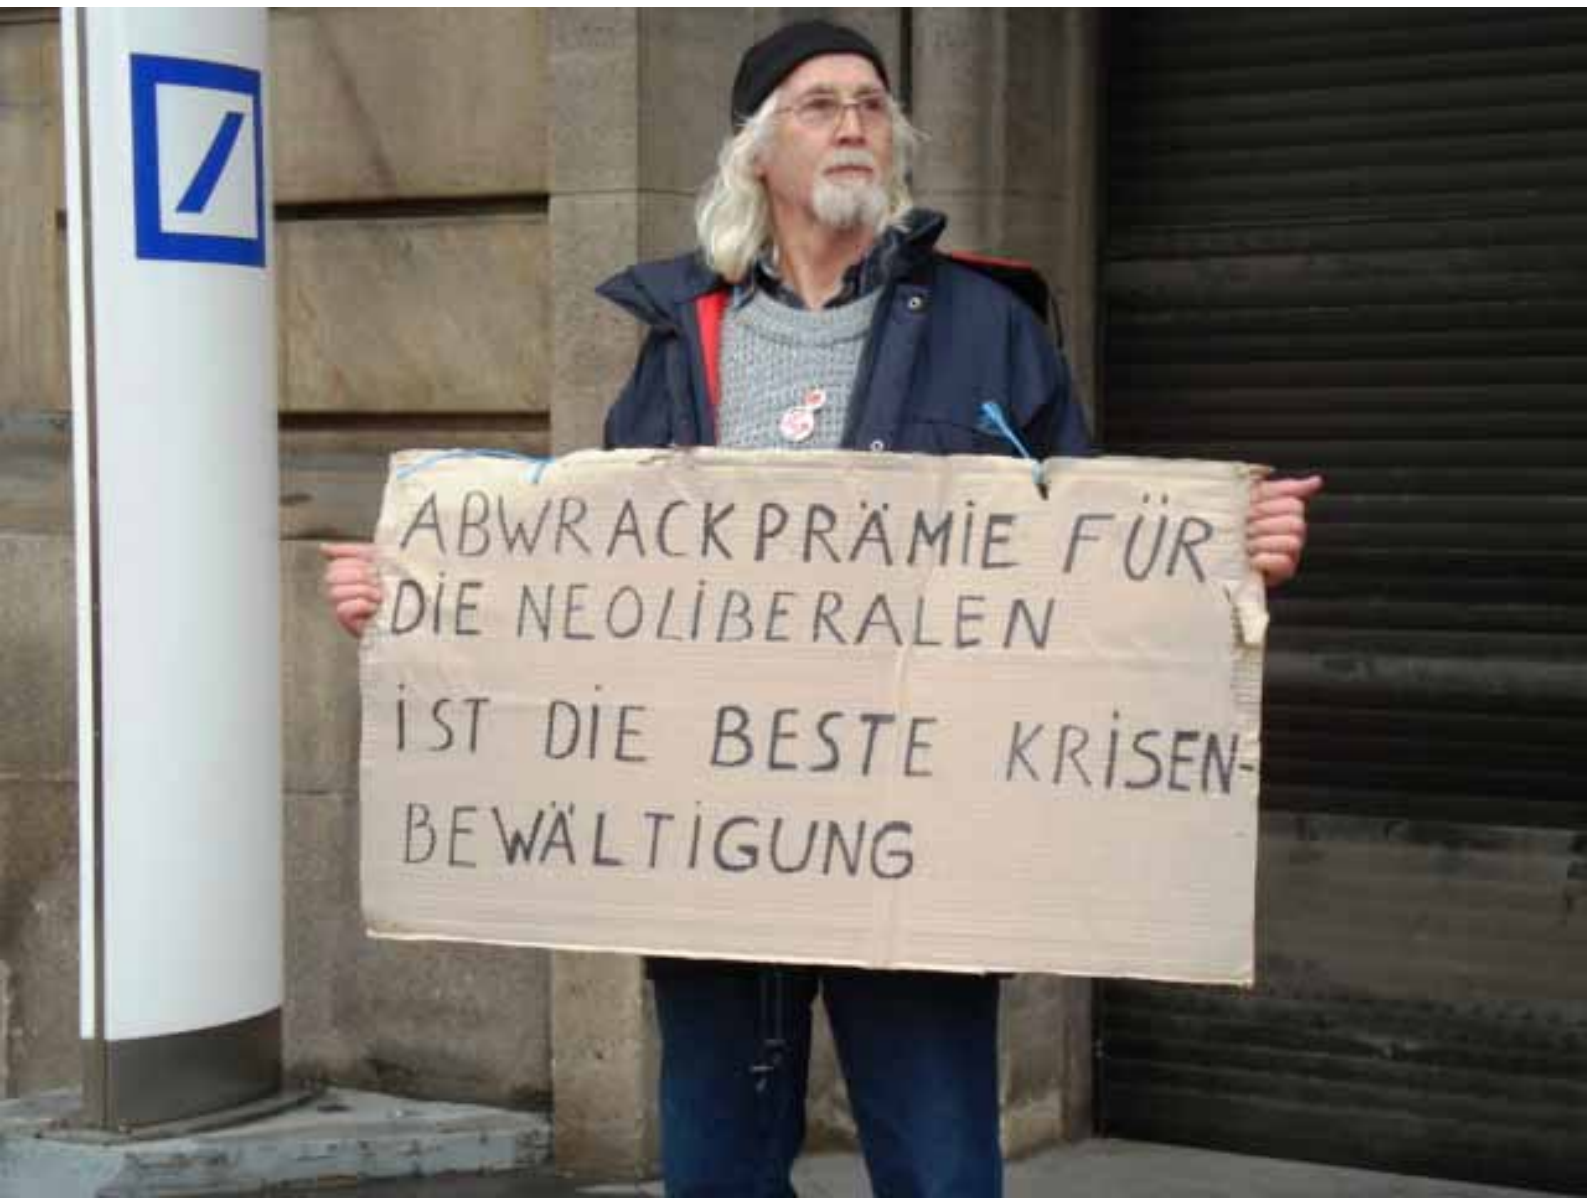 ABWRACKPRÄMIE FÜR
DIE NEOLIBERALEN
IST DIE BESTE KRISEN-
BEWÄLTIGUNG